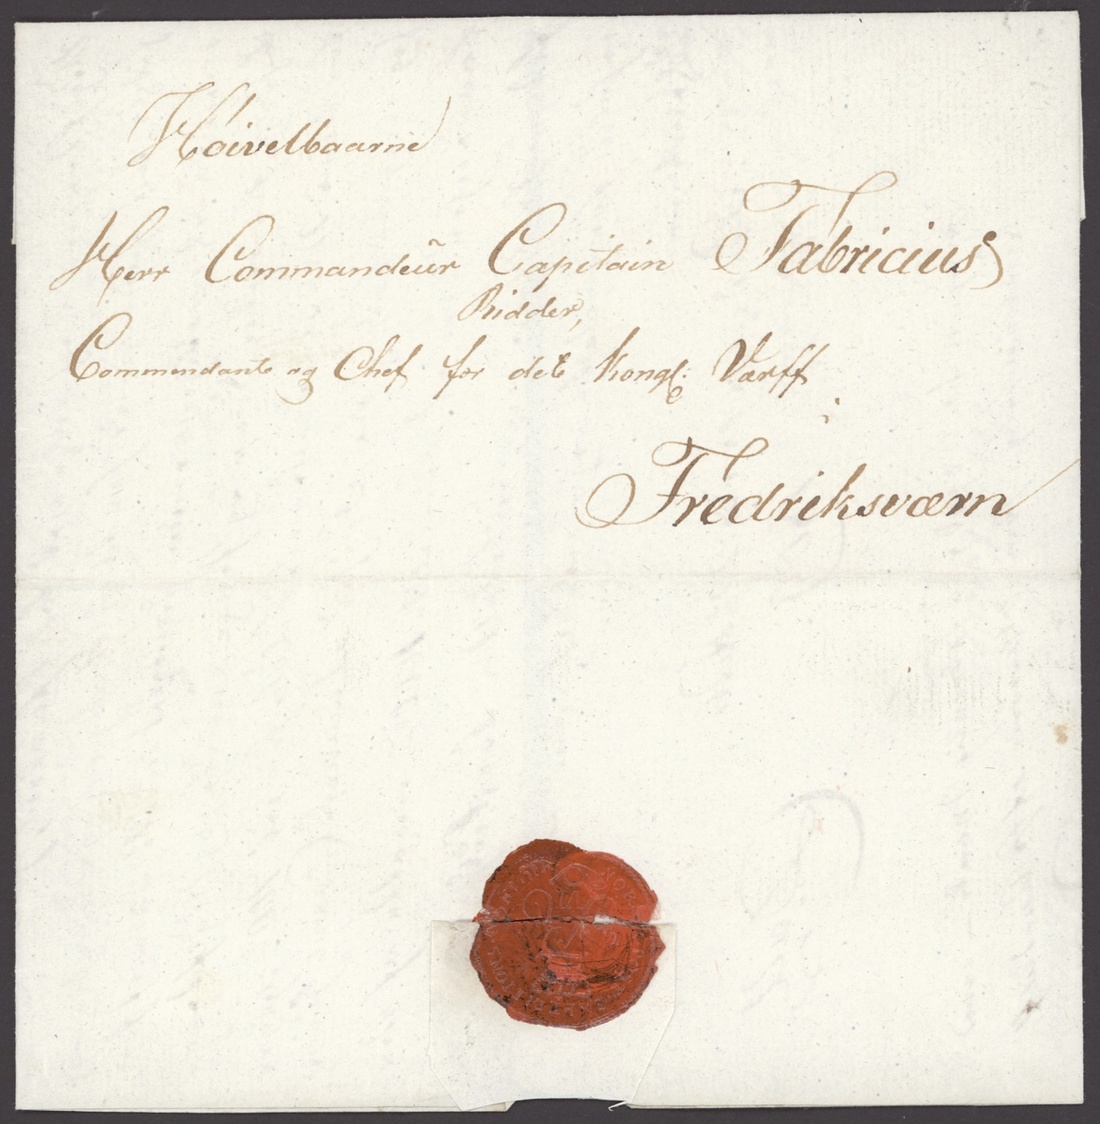 Høivelbaarne
Herr Commandeür Capitain Fabricius
Ridder,
Commendant og Chef for det Kongl: Værff
Fredriksværn